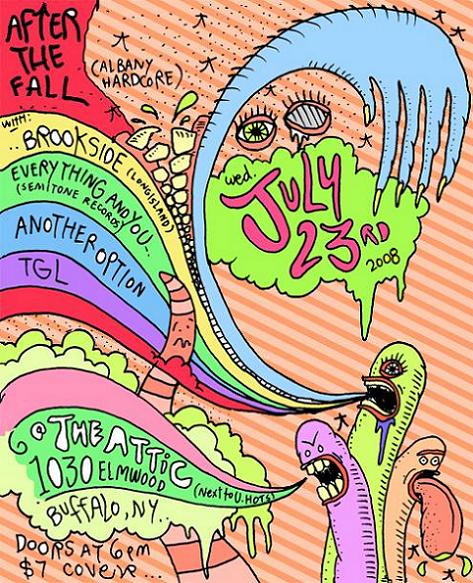 AFTER
THE
FALL
(ALBANY
HARDCORE)
with:
..BROOKSIDE (LONG ISLAND)
EVERYTHING AND YOU...
(SEMITONE RECORDS)
ANOTHER OPTION
TGL
wed.
JULY
23RD
2008
@ THE ATTIC
1030 ELMWOOD
(Next to U. HOTS)
BUFFALO, NY.
DOORS AT 6pm
$7 COVER...